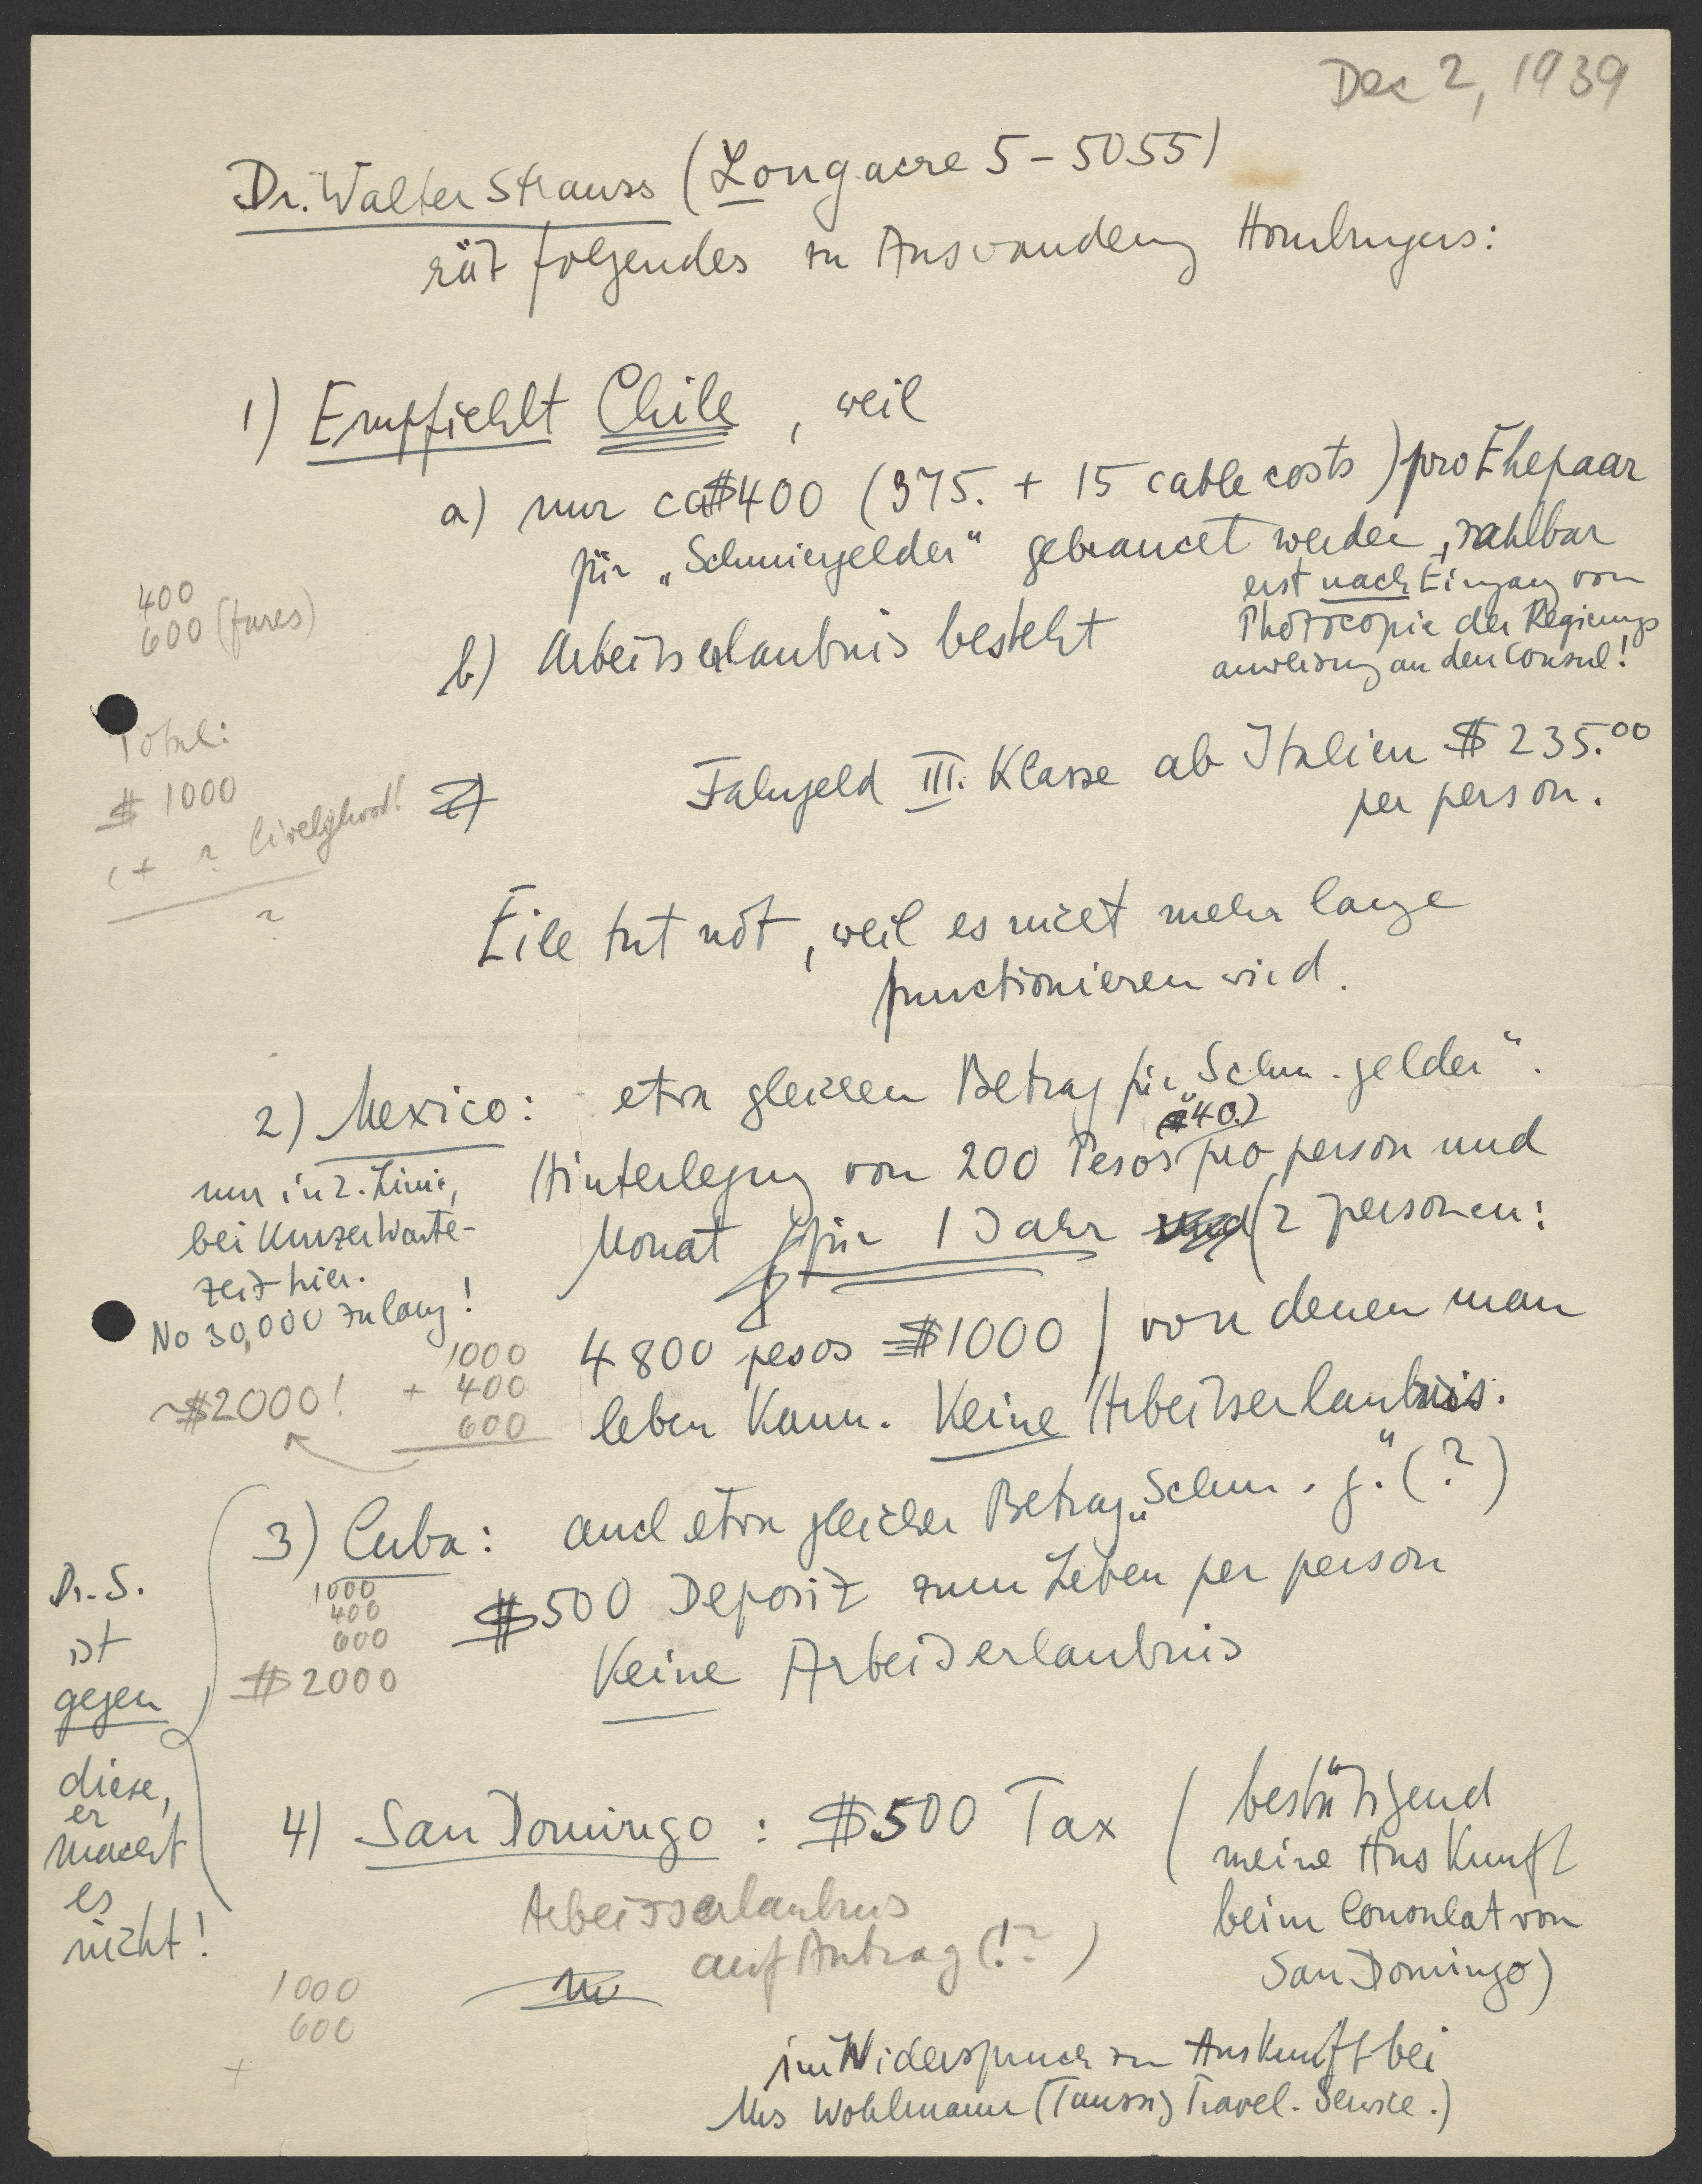 Dec 2, 1939
Dr. Walter Strauss (Longacre 5-5055)
rät folgendes zu Auswanderung Homburgers:
1) Empfiehlt Chile, weil
a) nur ca $400 (375. + 15 cable costs) pro Ehepaar
für „Schmiergelder“ gebraucht werden, zahlbar
erst nach Eingang von
Photocopie der Regierungs
anweisung an den Consul!
b) Arbeitserlaubnis besteht
400
600 (fares)
Total:
$ 1000
(+ ? livelyhood!
?
2)
Fahrgeld III. Klasse ab Italien $ 235.00
per person.
Eile tut not, weil es nicht mehr lange
functionieren wird.
2) Mexico: etwa gleichen Betrag für „Schm.gelder“.
nur in 2. Linie,
bei kurzer Warte-
zeit hier.
No 30,000 zu lang!
Hinterlegung von 200 Pesos ($40.) pro person und
Monat für 1 Jahr und (2 personen:
4800 pesos = $1000) von denen man
leben kann. Keine Arbeitserlaubnis.
1000
+ 400
600
~$2000!
3) Cuba: auch etwa gleicher Betrag „Schm. g.“ (?)
$500 Deposit zum Leben per person
Keine Arbeitserlaubnis
1000
400
600
$ 2000
Dr. S.
ist
gegen
diese,
er
macht
es
nicht!
4) San Domingo: $500 Tax (bestätigend
meine Auskunft
beim Consulat von
San Domingo)
Arbeitserlaubnis
auf Antrag (!?)
1000
600
+
im Widerspruch zu Auskunft bei
Mrs Wohlmann (Taussig Travel. Service.)